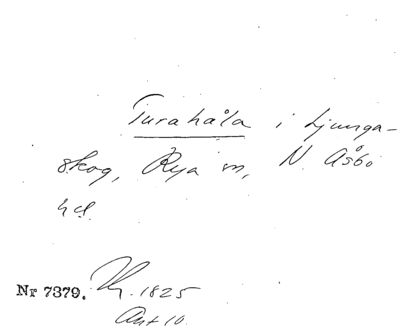 Turahåla i Ljunga-
skog, Rya sn, N. Åsbo
hd.
Nr 7379. 1825
Ant 10.